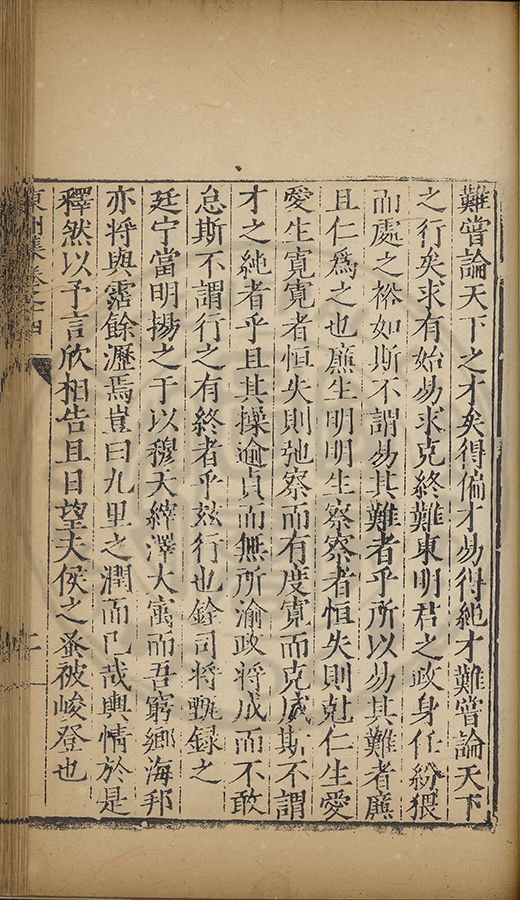 難嘗論天下之才矣得偏才易得純才難嘗論天下
之行矣求有始易求克終難東明君之政身任紛猥
而處之裕如斯不謂易其難者乎所以易其難者廉
且仁爲之也廉生明明生察察者恒失則尅仁生愛
愛生寬寬者恒失則弛察而有度寬而克威斯不謂
才之純者乎且其操逾貞而無所渝政將成而不敢
怠斯不謂行之有終者乎玆行也銓司將甄録之
廷宁當明揚之于以穆天縡澤大寓而吾窮鄉海邦
亦將與霑餘瀝焉豈曰九里之潤而已哉輿情於是
釋然以予言欣相告且日望夫侯之蚤被峻登也
集卷之十四